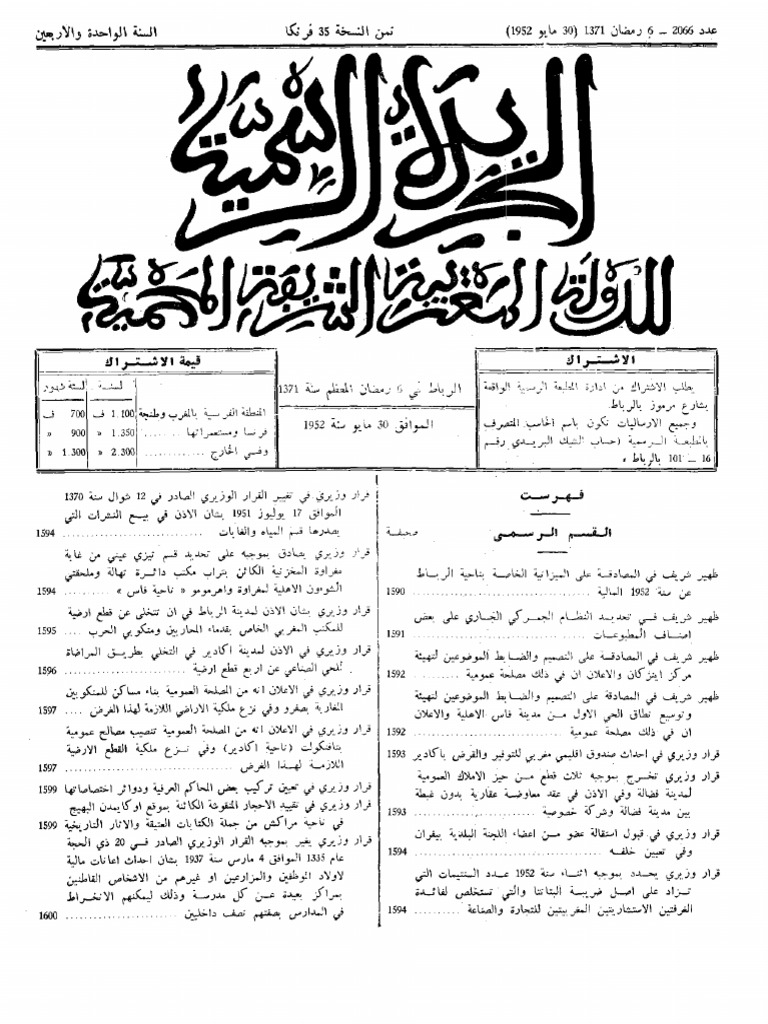 عدد 2066 ـ 6 رمضان 1371 (30 مايو 1952)
ثمن النسخة 35 فرنكا
السنة الواحدة والاربعين
الجريدة الرسمية
للدولة المغربية الشريفة المحمية
الاشتراك
يطلب الاشتراك من ادارة المطبعة الرسمية الواقعة
بشارع مرموز بالرباط.
وجميع الارساليات تكون باسم المحاسب المتصرف
بالمطبعة الرسمية (حساب الشيك البريدي رقم
16 ـ 101 بالرباط »
الرباط في 6 رمضان المعظم سنة 1371
الموافق 30 مايو سنة 1952
قيمة الاشتراك
لسنة
لستة شهور
المنطقة الفرنسية بالمغرب وطنجة 1.100 ف 700 ف
فرنسا ومستعمراتها ........ 1.350 » 900 »
وفي الخارج ........ 2.300 » 1.300 »
فهرست
القسم الرسمى
صحيفة
ظهير شريف في المصادقة على الميزانية الخاصة بناحية الرباط
عن سنة 1952 المالية ........ 1590
ظهير شريف في تحديد النظام الجمركي الجاري على بعض
اصناف المطبوعات ........ 1591
ظهير شريف في المصادقة على التصميم والضابط الموضوعين لتهيئة
مركز اينزكان والاعلان ان في ذلك مصلحة عمومية .... 1592
ظهير شريف في المصادقة على التصميم والضابط الموضوعين لتهيئة
وتوسيع نطاق الحي الاول من مدينة فاس الاهلية والاعلان
ان في ذلك مصلحة عمومية ........ 1592
قرار وزيري في احداث صندوق اقليمي مغربي للتوفير والقرض باكادير 1593
قرار وزيري تخرج بموجبه ثلاث قطع من حيز الاملاك العمومية
لمدينة فضالة وفي الاذن في عقد معاوضة عقارية بدون غبطة
بين مدينة فضالة وشركة خصوصية ........ 1593
قرار وزيري في قبول استقالة عضو من اعضاء اللجنة البلدية بيفران
وفي تعيين خلفه ........ 1594
قرار وزيري يحدد بموجبه اثناء سنة 1952 عدد السنتيمات التي
تزاد على اصل ضريبة الباتنتا والتي تستخلص لفائدة
الغرفتين الاستشاريتين المغربيتين للتجارة والصناعة .... 1594
قرار وزيري في تغيير القرار الوزيري الصادر في 12 شوال سنة 1370
الموافق 17 يوليوز 1951 بشان الاذن في بيع النشرات التي
يصدرها قسم المياه والغابات ........ 1594
قرار وزيري يصادق بموجبه على تحديد قسم تيزي عيني من غابة
مغراوة المخزنية الكائن بتراب مكتب دائرة تهالة وملحقتي
الشوءون الاهلية لمغراوة واهرمومو « ناحية فاس » .... 1594
قرار وزيري بشان الاذن لمدينة الرباط في ان تتخلى عن قطع ارضية
للمكتب المغربي الخاص بقدماء المحاربين ومنكوبي الحرب .... 1595
قرار وزيري في الاذن لمدينة اكادير في التخلي بطريق المراضاة
للحي الصناعي عن اربع قطع ارضية ........ 1596
قرار وزيري في الاعلان انه من المصلحة العمومية بناء مساكن للمنكوبين
المغاربة بصفرو وفي نزع ملكية الاراضي اللازمة لهذا الغرض .... 1597
قرار وزيري في الاعلان انه من المصلحة العمومية تنصيب مصالح عمومية
بتافنكولت (ناحية اكادير) وفي نزع ملكية القطع الارضية
اللازمة لهذا الغرض ........ 1597
قرار وزيري في تعيين تركيب بعض المحاكم العرفية ودوائر اختصاصاتها 1599
قرار وزيري في تقييد الاحجار المنقوشة الكائنة بموقع اوكايمدن البهيج
في ناحية مراكش من جملة الكتابات العتيقة والاثار التاريخية 1599
قرار وزيري يغير بموجبه القرار الوزيري الصادر في 20 ذي الحجة
عام 1335 الموافق 4 مارس سنة 1937 بشان احداث اعانات مالية
لاولاد الموظفين والمزارعين او غيرهم من الاشخاص القاطنين
بمراكز بعيدة عن كل مدرسة وذلك ليمكنهم الانخراط
في المدارس بصفتهم نصف داخليين ........ 1600